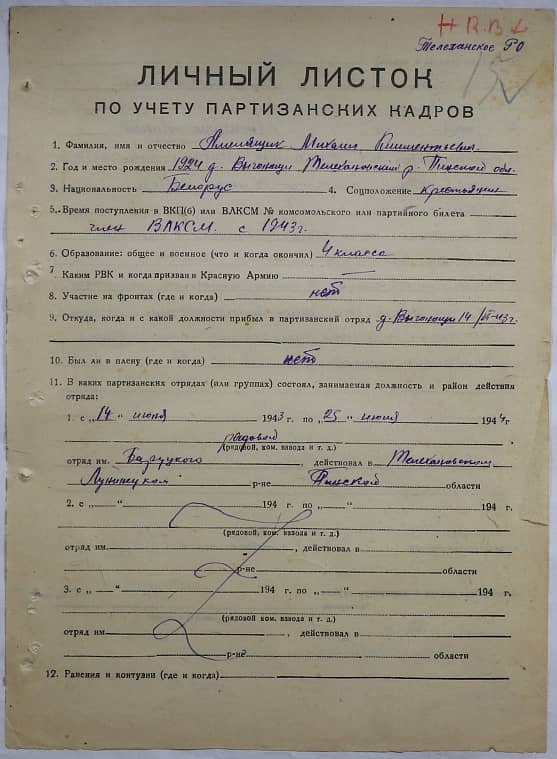 Телеханское РО
15
ЛИЧНЫЙ ЛИСТОК
ПО УЧЕТУ ПАРТИЗАНСКИХ КАДРОВ
1. Фамилия, имя и отчество Михаил Климентьевич
2. Год и место рождения 1924 д. Выгонощи Телехановский р. Пинской обл.
3. Национальность Белорус 4. Соцположение крестьянин
5. Время поступления в ВКП(б) или ВЛКСМ № комсомольского или партийного билета
член ВЛКСМ с 1943 г.
6. Образование: общее и военное (что и когда окончил) 4 класса
7 Каким РВК и когда призван в Красную Армию —
8. Участие на фронтах (где и когда) нет
9. Откуда, когда и с какой должности прибыл в партизанский отряд д. Выгонощи 14/VI-43 г.
10. Был ли в плену (где и когда) нет
11. В каких партизанских отрядах (или группах) состоял, занимаемая должность и район действия
отряда:
1. с „14" июня 1943 г. по „25" июня 1944 г
рядовой
(рядовой, ком. взвода и т. д.)
отряд им. , действовал в Телехановском
Лунинецком р-не Пинской области
2. с „—" 194 г. по „—" 194 г.
(рядовой, ком. взвода и т. д.)
отряд им. , действовал в
р-не области
3. с „—" 194 г. по „—" 194 г.
(рядовой ком. взвода и т. д.)
отряд им , действовал в
р-не области
12. Ранения и контузии (где и когда)